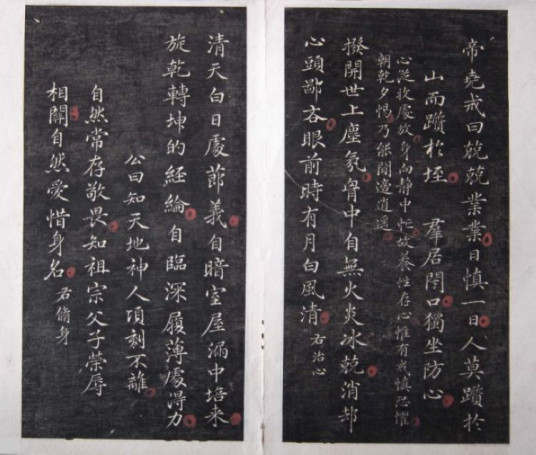 帝堯戒曰兢兢業業日慎一日人莫躓於
山而躓於垤 羣居閉口獨坐防心
心從收處放身向靜中忙故養性存心惟有戒慎恐懼
朝乾夕惕乃能閒適逍遙
撥開世上塵氛胷中自無火炎冰兢消却
心頭鄙吝眼前時有月白風清 右治心
清天白日處節義自暗室屋漏中培來
旋乾轉坤的經綸自臨深履薄處得力
公曰知天地神人頃刻不離
自然常存敬畏知祖宗父子榮辱
相關自然愛惜身名 右脩身